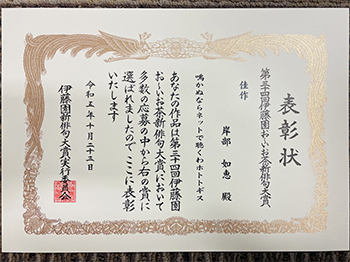 表彰状
第三十四回伊藤園お～いお茶新俳句大賞
佳作
岸部 如恵 殿
鳴かぬならネットで聴くわホトトギス
あなたの作品は第三十四回伊藤園
お～いお茶新俳句大賞において
多数の応募の中から右の賞に
選ばれましたのでここに表彰
いたします
令和五年十月二十三日
伊藤園新俳句大賞実行委員会